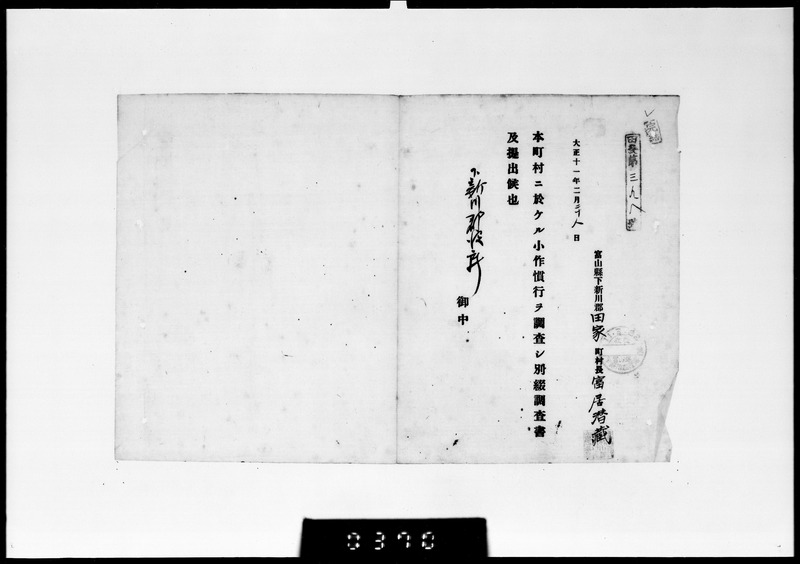 第三九八號
大正十一年二月廿八日
富山縣下新川郡田家町村長
本町村ニ於ケル小作慣行ヲ調査シ別綴調査書
及提出候也
下新川郡役所
御中
0370